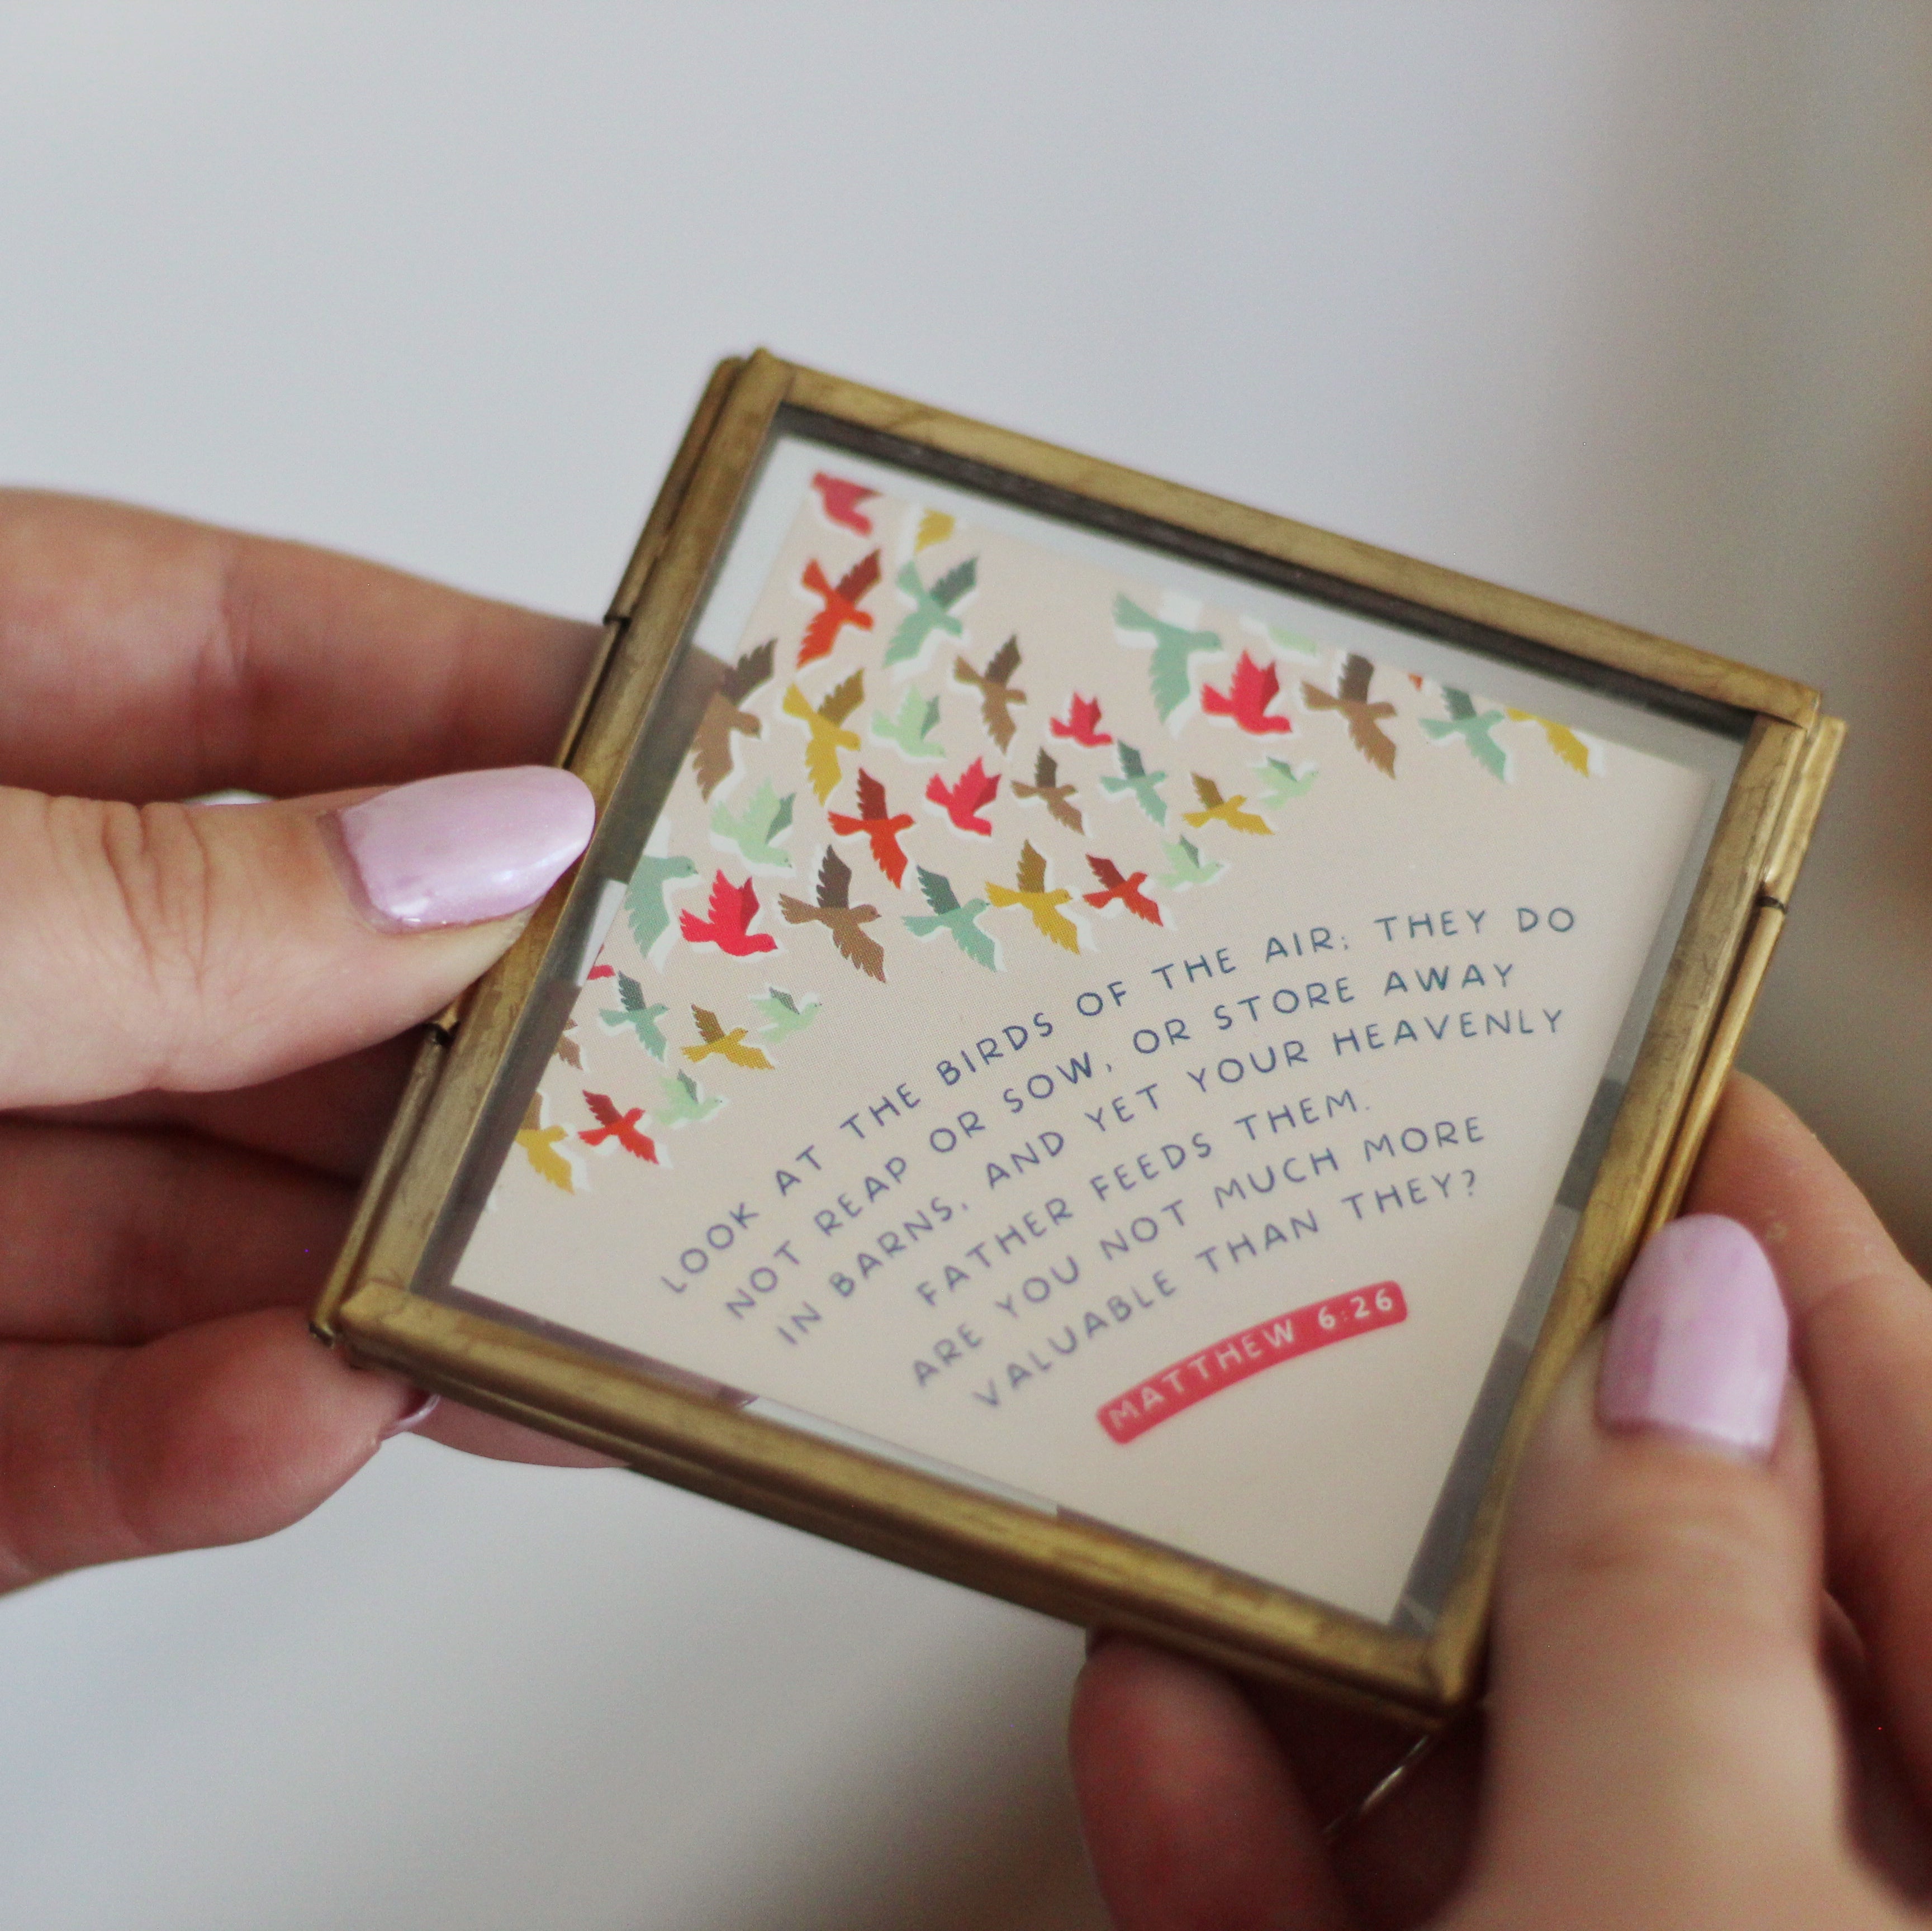 LOOK AT THE BIRDS OF THE AIR; THEY DO
NOT REAP OR SOW, OR STORE AWAY
IN BARNS, AND YET YOUR HEAVENLY
FATHER FEEDS THEM.
ARE YOU NOT MUCH MORE
VALUABLE THAN THEY?
MATTHEW 6:26